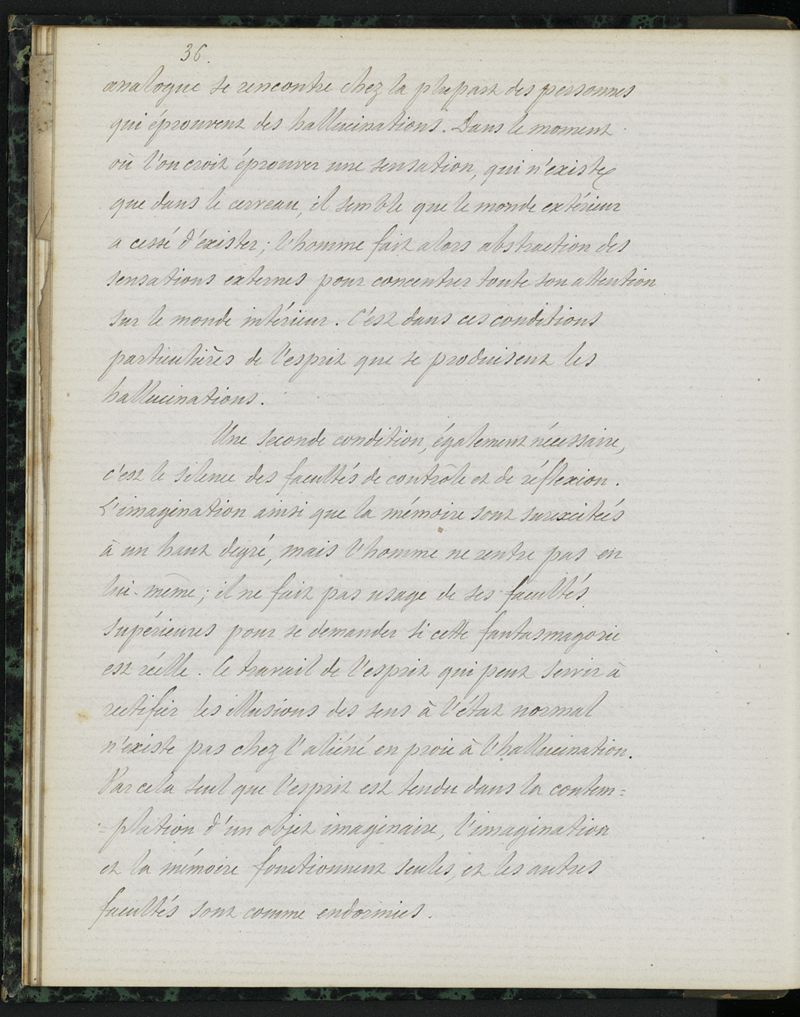 36.
analogue se rencontre chez la plupart des personnes
qui éprouvent des hallucinations. Dans le moment
où l'on croit éprouver une sensation, qui n'existe
que dans le cerveau, il semble que le monde extérieur
a cessé d'exister; l'homme fait alors abstraction des
sensations externes pour concentrer toute son attention
sur le monde intérieur. C'est dans ces conditions
particulières de l'esprit que se produisent les
hallucinations.
Une seconde condition, également nécessaire,
c'est le silence des facultés de contrôle et de réflexion.
L'imagination ainsi que la mémoire sont surexcitées
à un haut degré, mais l'homme ne rentre pas en
lui-même; il ne fait pas usage de ses facultés
supérieures pour se demander si cette fantasmagorie
est réelle. Ce travail de l'esprit qui peut servir à
rectifier les illusions des sens à l'état normal
n'existe pas chez l'aliéné en proie à l'hallucination.
Par cela seul que l'esprit est tendu dans la contem=
=plation d'un objet imaginaire, l'imagination
et la mémoire fonctionnent seules, et les autres
facultés sont comme endormies.